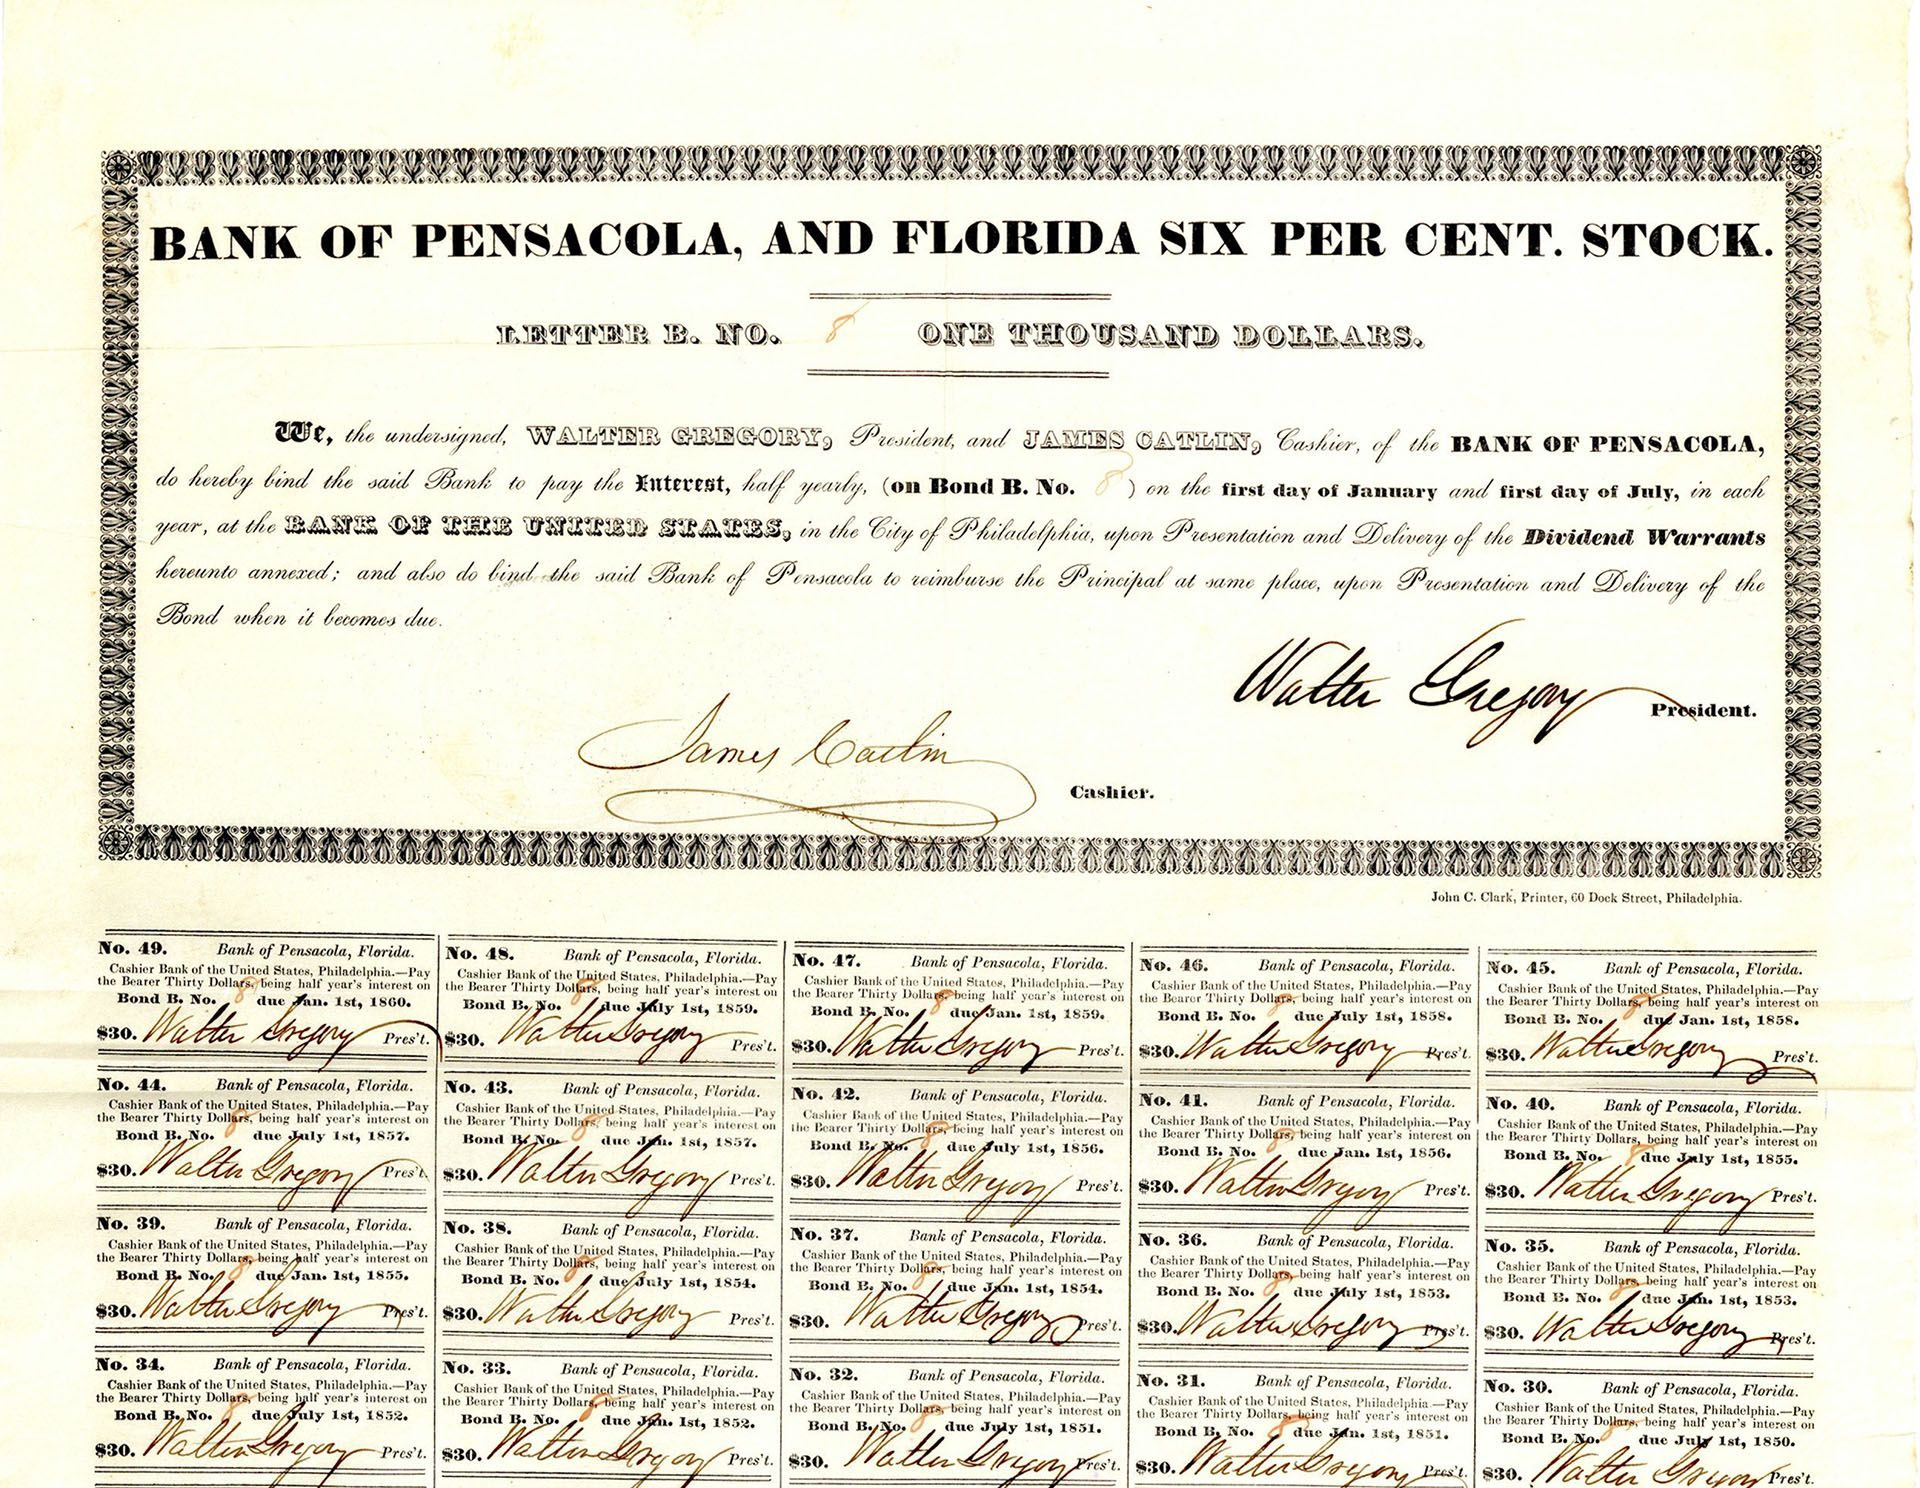 BANK OF PENSACOLA, AND FLORIDA SIX PER CENT. STOCK.
LETTER B. NO. 8 ONE THOUSAND DOLLARS.
We, the undersigned, WALTER GREGORY, President, and JAMES CATLIN, Cashier, of the BANK OF PENSACOLA,
do hereby bind the said Bank to pay the Interest, half yearly, (on Bond B. No. 8 ) on the first day of January and first day of July, in each
year, at the BANK OF THE UNITED STATES, in the City of Philadelphia, upon Presentation and Delivery of the Dividend Warrants
hereunto annexed; and also do bind the said Bank of Pensacola to reimburse the Principal at same place, upon Presentation and Delivery of the
Bond when it becomes due.
Walter Gregory President.
James Catlin Cashier.
John C. Clark, Printer, 60 Dock Street, Philadelphia.
No. 49. Bank of Pensacola, Florida.
Cashier Bank of the United States, Philadelphia.—Pay
the Bearer Thirty Dollars, being half year's interest on
Bond B. No. 8 due Jan. 1st, 1860.
$30. Walter Gregory Pres't.
No. 48. Bank of Pensacola, Florida.
Cashier Bank of the United States, Philadelphia.—Pay
the Bearer Thirty Dollars, being half year's interest on
Bond B. No. 8 due July 1st, 1859.
$30. Walter Gregory Pres't.
No. 47. Bank of Pensacola, Florida.
Cashier Bank of the United States, Philadelphia.—Pay
the Bearer Thirty Dollars, being half year's interest on
Bond B. No. 8 due Jan. 1st, 1859.
$30. Walter Gregory Pres't.
No. 46. Bank of Pensacola, Florida.
Cashier Bank of the United States, Philadelphia.—Pay
the Bearer Thirty Dollars, being half year's interest on
Bond B. No. 8 due July 1st, 1858.
$30. Walter Gregory Pres't.
No. 45. Bank of Pensacola, Florida.
Cashier Bank of the United States, Philadelphia.—Pay
the Bearer Thirty Dollars, being half year's interest on
Bond B. No. 8 due Jan. 1st, 1858.
$30. Walter Gregory Pres't.
No. 44. Bank of Pensacola, Florida.
Cashier Bank of the United States, Philadelphia.—Pay
the Bearer Thirty Dollars, being half year's interest on
Bond B. No. 8 due July 1st, 1857.
$30. Walter Gregory Pres't.
No. 43. Bank of Pensacola, Florida.
Cashier Bank of the United States, Philadelphia.—Pay
the Bearer Thirty Dollars, being half year's interest on
Bond B. No. 8 due Jan. 1st, 1857.
$30. Walter Gregory Pres't.
No. 42. Bank of Pensacola, Florida.
Cashier Bank of the United States, Philadelphia.—Pay
the Bearer Thirty Dollars, being half year's interest on
Bond B. No. 8 due July 1st, 1856.
$30. Walter Gregory Pres't.
No. 41. Bank of Pensacola, Florida.
Cashier Bank of the United States, Philadelphia.—Pay
the Bearer Thirty Dollars, being half year's interest on
Bond B. No. 8 due Jan. 1st, 1856.
$30. Walter Gregory Pres't.
No. 40. Bank of Pensacola, Florida.
Cashier Bank of the United States, Philadelphia.—Pay
the Bearer Thirty Dollars, being half year's interest on
Bond B. No. 8 due July 1st, 1855.
$30. Walter Gregory Pres't.
No. 39. Bank of Pensacola, Florida.
Cashier Bank of the United States, Philadelphia.—Pay
the Bearer Thirty Dollars, being half year's interest on
Bond B. No. 8 due Jan. 1st, 1855.
$30. Walter Gregory Pres't.
No. 38. Bank of Pensacola, Florida.
Cashier Bank of the United States, Philadelphia.—Pay
the Bearer Thirty Dollars, being half year's interest on
Bond B. No. 8 due July 1st, 1854.
$30. Walter Gregory Pres't.
No. 37. Bank of Pensacola, Florida.
Cashier Bank of the United States, Philadelphia.—Pay
the Bearer Thirty Dollars, being half year's interest on
Bond B. No. 8 due Jan. 1st, 1854.
$30. Walter Gregory Pres't.
No. 36. Bank of Pensacola, Florida.
Cashier Bank of the United States, Philadelphia.—Pay
the Bearer Thirty Dollars, being half year's interest on
Bond B. No. 8 due July 1st, 1853.
$30. Walter Gregory Pres't.
No. 35. Bank of Pensacola, Florida.
Cashier Bank of the United States, Philadelphia.—Pay
the Bearer Thirty Dollars, being half year's interest on
Bond B. No. 8 due Jan. 1st, 1853.
$30. Walter Gregory Pres't.
No. 34. Bank of Pensacola, Florida.
Cashier Bank of the United States, Philadelphia.—Pay
the Bearer Thirty Dollars, being half year's interest on
Bond B. No. 8 due July 1st, 1852.
$30. Walter Gregory Pres't.
No. 33. Bank of Pensacola, Florida.
Cashier Bank of the United States, Philadelphia.—Pay
the Bearer Thirty Dollars, being half year's interest on
Bond B. No. 8 due Jan. 1st, 1852.
$30. Walter Gregory Pres't.
No. 32. Bank of Pensacola, Florida.
Cashier Bank of the United States, Philadelphia.—Pay
the Bearer Thirty Dollars, being half year's interest on
Bond B. No. 8 due July 1st, 1851.
$30. Walter Gregory Pres't.
No. 31. Bank of Pensacola, Florida.
Cashier Bank of the United States, Philadelphia.—Pay
the Bearer Thirty Dollars, being half year's interest on
Bond B. No. 8 due Jan. 1st, 1851.
$30. Walter Gregory Pres't.
No. 30. Bank of Pensacola, Florida.
Cashier Bank of the United States, Philadelphia.—Pay
the Bearer Thirty Dollars, being half year's interest on
Bond B. No. 8 due July 1st, 1850.
$30. Walter Gregory Pres't.